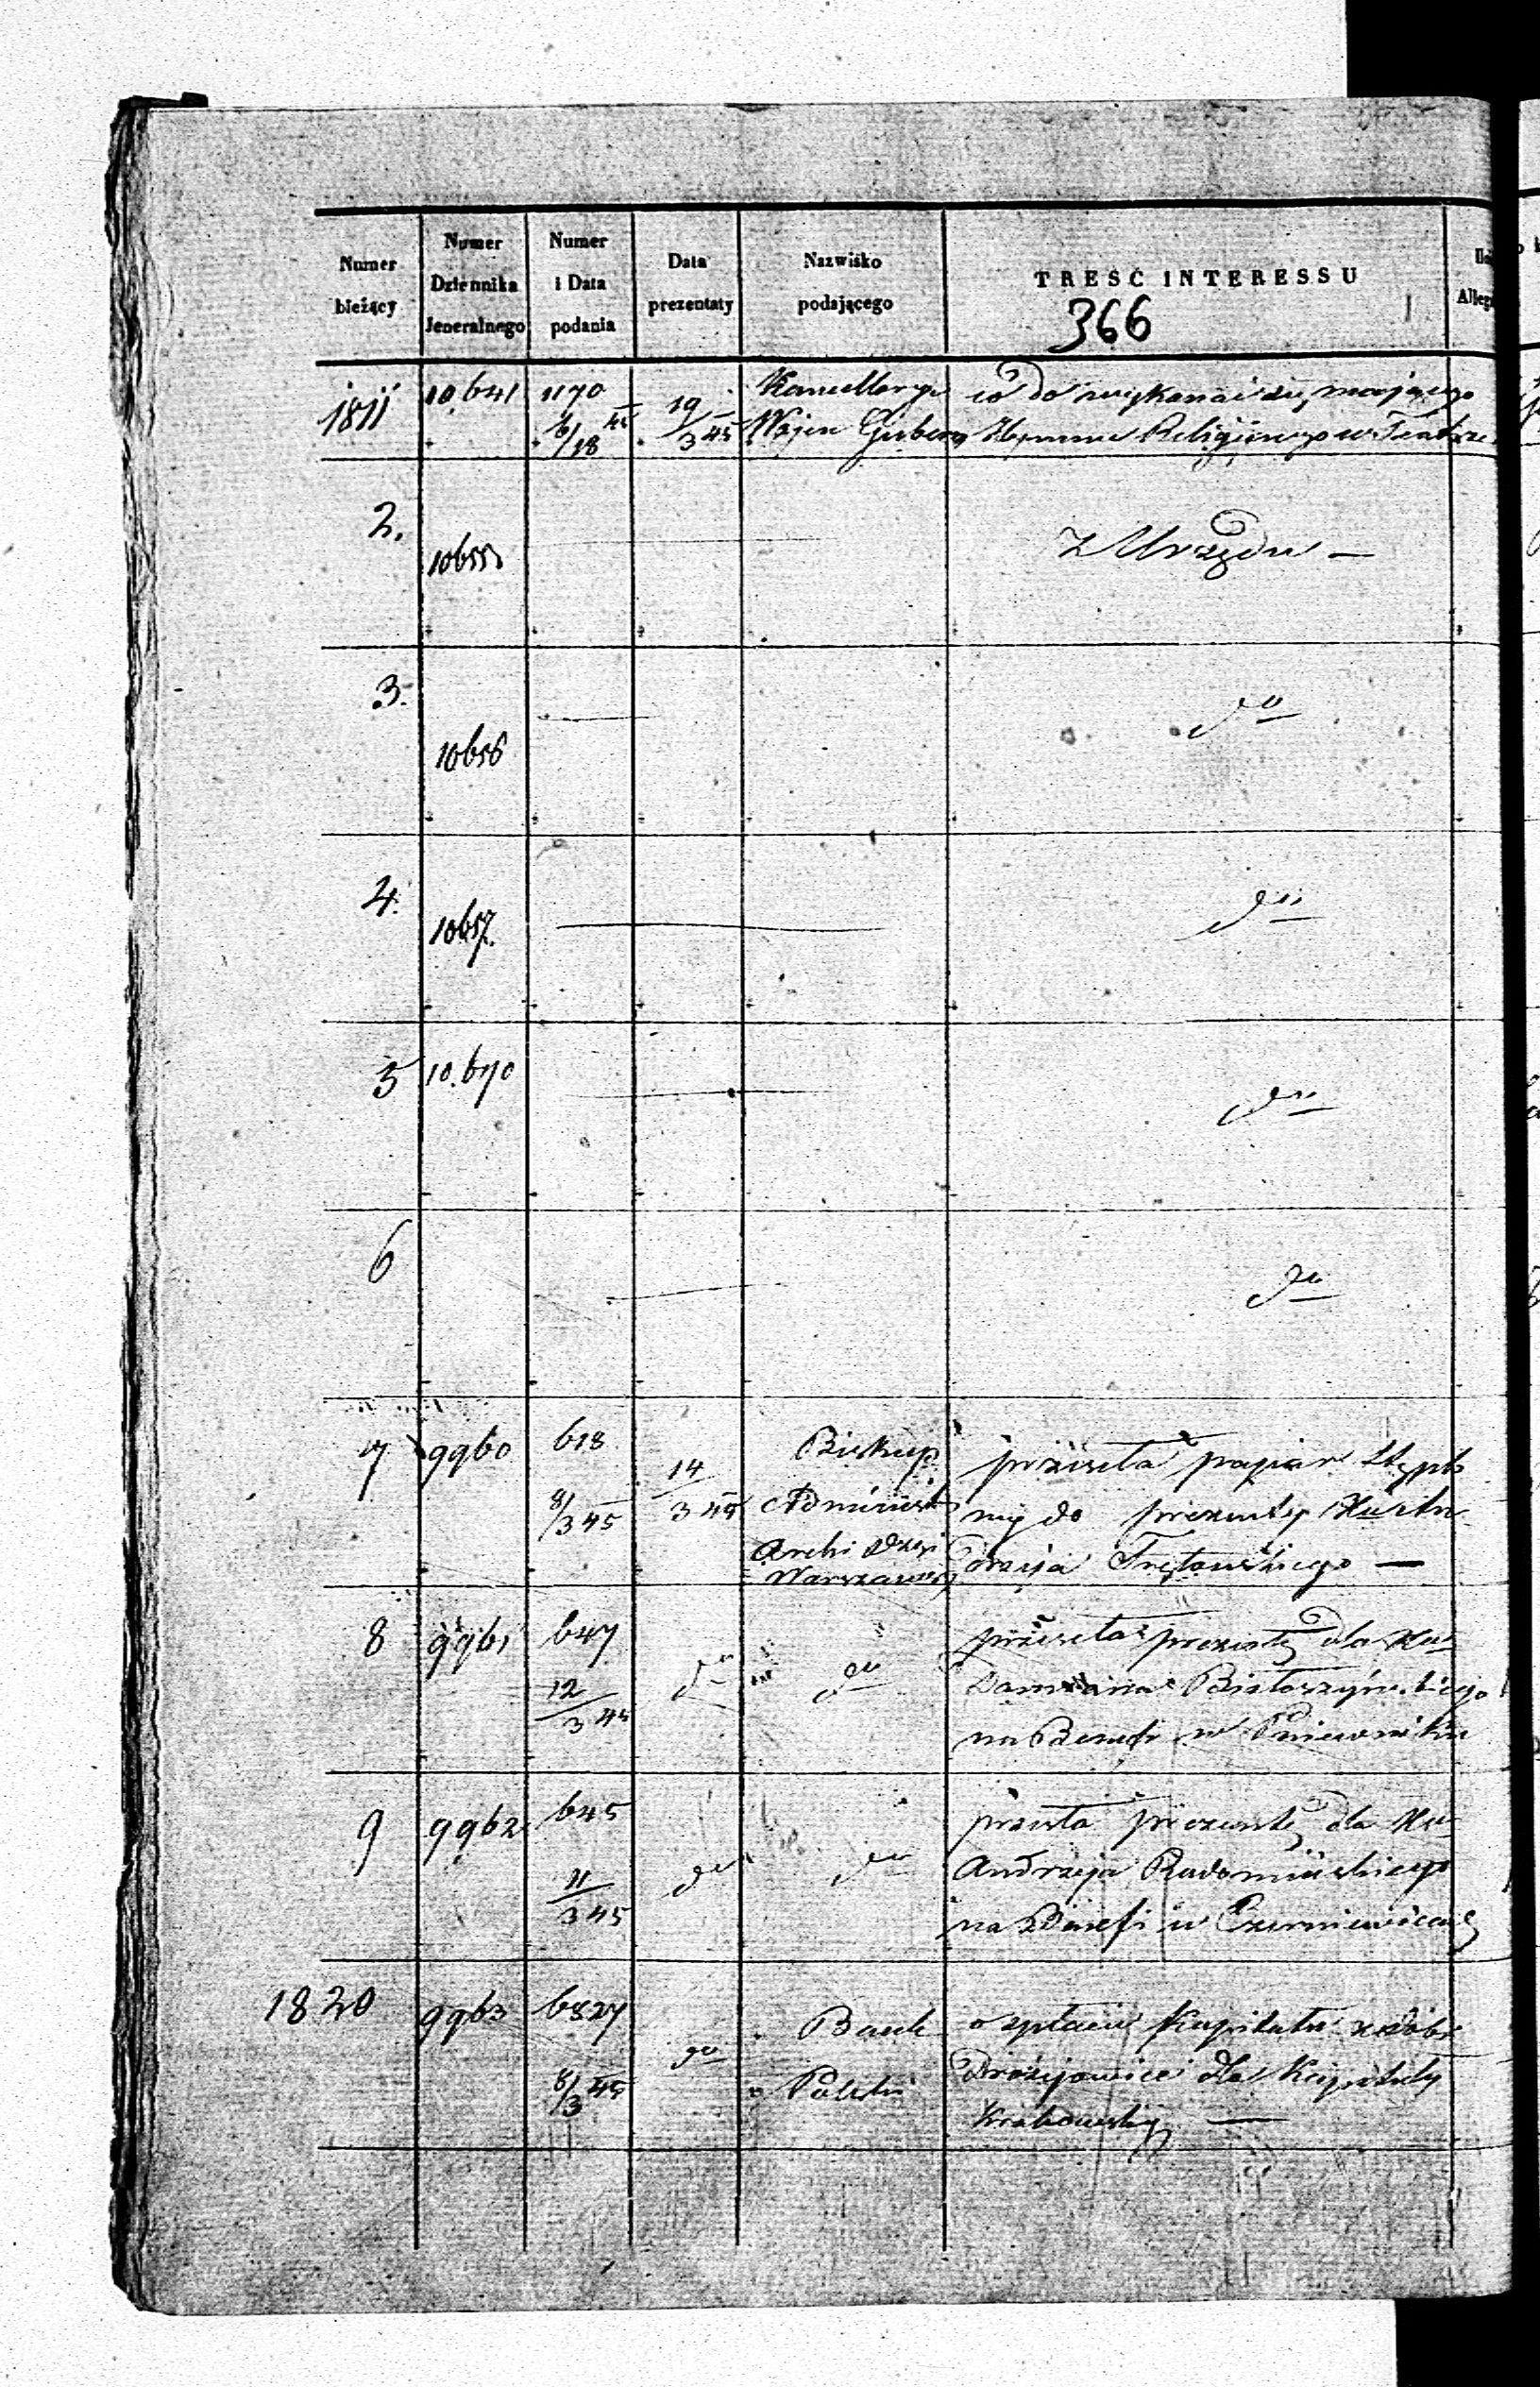 Numer bieżący
Numer Dziennika Jeneralnego
Numer i Data podania
Data prezentaty
Nazwisko podającego
TREŚĆ INTERESSU
366
1811 10.641 1170 6/18 45 19/3 45 Kancellarya co do wykonać się mającego
Wojen Gubern Hymnu Religijnego w Teatrze
2. 10655 z Urzędu —
3. 10656 do
4. 10657. do
5 10.670 do
6 do
7 9960 618 8/3 45 14/3 45 Biskup przesyła papier stęplo
Administ ny do prezenty Xiędza
Archi Dyec
Warszaws
8 9961 647 12/3 45 do do przesyła prezentę dla Xdza
Damiana
na Benef w Pniewniku
9 9962 645 11/3 45 do do przesyła prezentę dla Xdza
Andrzeja Radomińskiego
na Benefi w Czerniewicach
1820 9963 6827 8/3 45 do Bank o spłacie Kapitału z dóbr
Polski Drożejowice dla Kapituły
Krakowskiej —